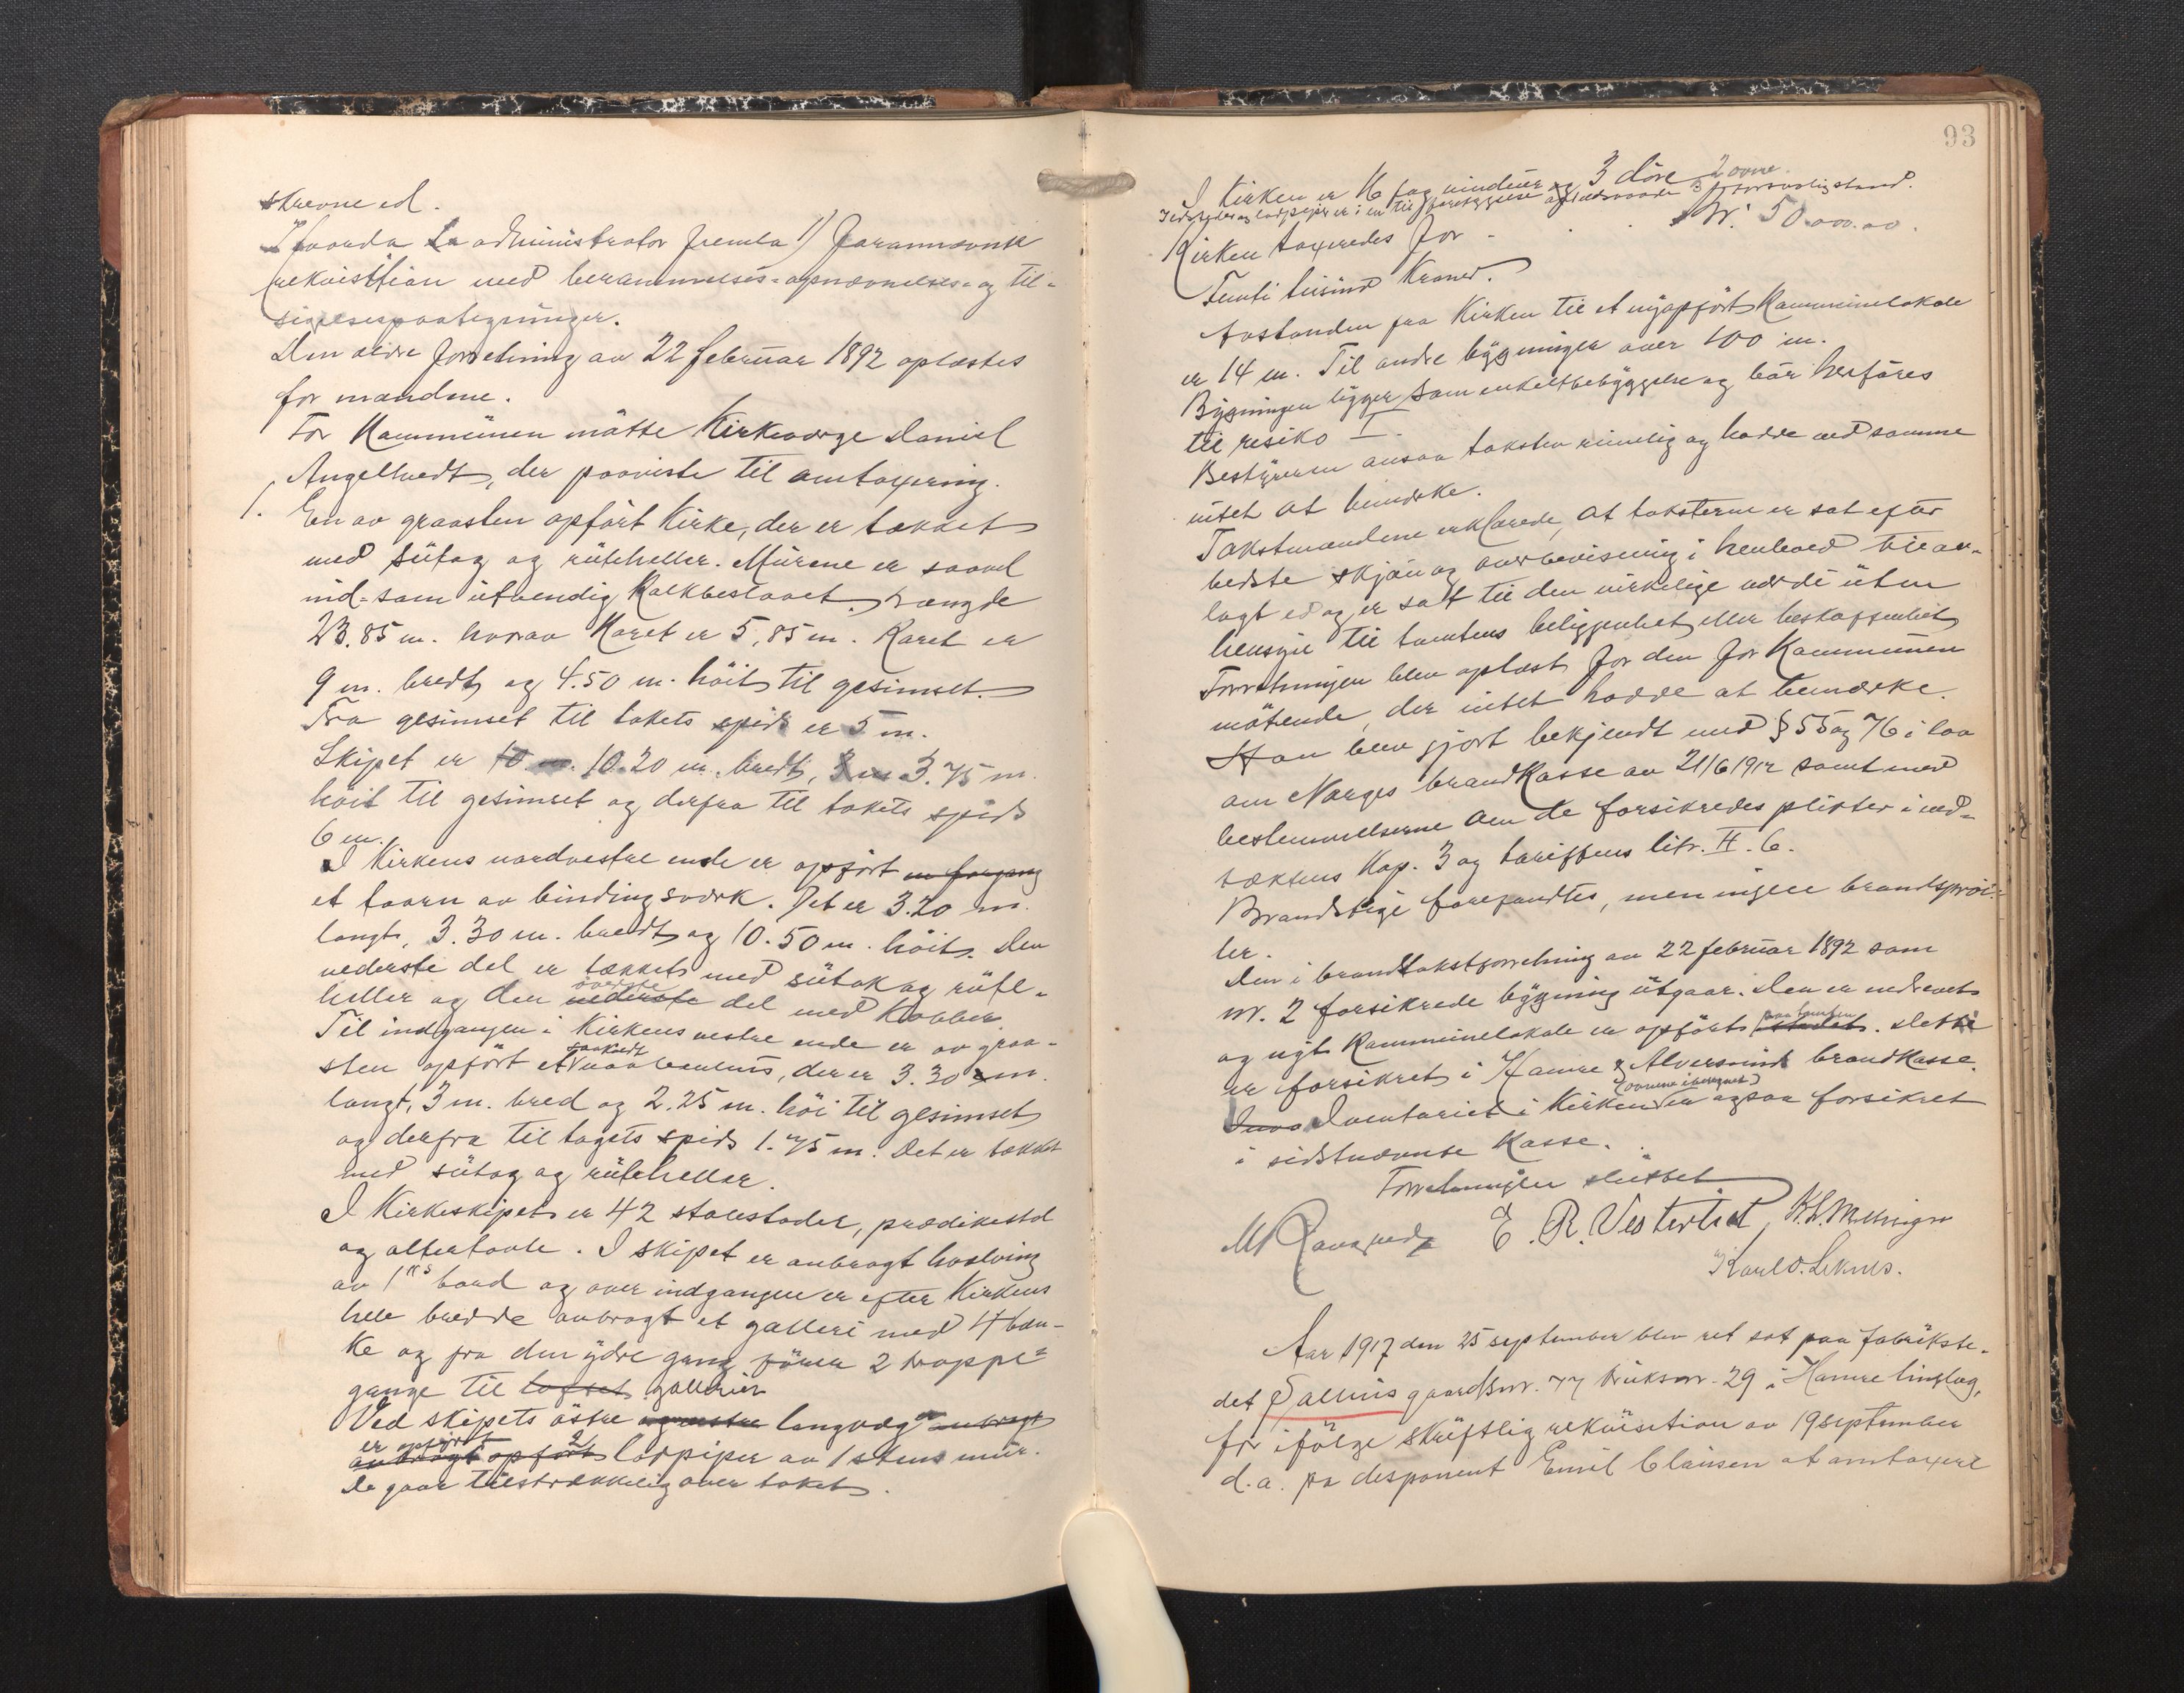 skrevne ed.
administrator fremla 1)
rekvisition med berammelses- opnævnelses- og til-
sigelsespaategninger.
Den ældre forretning av 22 februar 1892 oplæstes
for mændene.
For Kommunen møtte Kirkeverge Daniel
Angeltvedt, der paaviste til omtaxering.
1. En av graasten opført Kirke, der er tækket
med sutag og ruteheller. Murene er saavel
ind- som utvendig Kalkbeslaaet. Længde
23.85 m. hvorav Koret er 5,85 m. Koret er
9 m. bredt og 4.50 m. høit til gesimset.
Fra gesimset til takets spids er 5 m.
Skipet er 10 m. 10.20 m. bredt, 3 m 3.75 m.
høit til gesimset og derfra til takets spids
6 m.
I Kirkens nordvestre ende er opført en forgang
et taarn av bindingsverk. Det er 3.20 m.
langt, 3.30 m. bredt og 10.50 m. høit. Den
nederste del er tækket med sutak og rute-
heller og den nederste øverste del med Kobber.
Til indgangen i Kirkens vestre ende er av graa-
sten opført et saakaldt vaabenhus, der er 3.30 m.
langt, 3 m. bred og 2.25 m. høi til gesimset
og derfra til tagets spids 1.75 m. Det er tækket
med sutag og ruteheller.
I Kirkeskipet er 42 stolestader, prædikestol
og altertavle. I skipet er anbragt hvælving
av 1" bord og over indgangen er efter Kirkens
hele bredde anbragt et galleri med 4 bæn-
ke og fra den ydre gang fører 2 trappe-
gange til loftet galleriet
Ved skipets østre og vestre langvæg er anbragt
er opført anbragt opført 2 luftpiper av 1 stens mur.
De gaar tilstrækkelig over taket.
93
I Kirken er 16 fag vinduer og 3 døre 2 ovne.
Ildsteder og luftpiper er i en til forebyggelse av ildsvaade forsvarlig stand.
Kirken taxeredes for - . . Kr. 50.000.00.
Femti tusind Kroner.
Avstanden fra Kirken til et nyopført Kommunelokale
er 14 m. Til andre bygninger over 100 m.
Bygningen ligger som enkeltbebyggelse og bør henføres
til risiko I.
Bestyreren ansaa taksten rimelig og hadde ved samme
intet at bemerke.
Takstmændene erklærede, at taksterne er sat efter
bedste skjøn og overbevisning i henhold til av-
lagt ed og er sat til den virkelige værdi uten
hensyn til tomtens beliggenhet eller beskaffenhet.
Forretningen blev oplæst for den for Kommunen
møtende, der intet hadde at bemerke.
Han blev gjort bekjendt med § 55 og 76 i lov
om Norges brandkasse av 21/6 1912 samt med
bestemmelserne om de forsikredes plikter i ved-
tæktens Kap. 3 og tariffens litr. H. 6.
Brandstige forefandtes, men ingen brandsprøi-
ter.
Den i brandtakstforretning av 22 februar 1892 som
nr. 2 forsikrede bygning utgaar. Den er nedrevet
og nyt Kommunelokale er opført stedet paa tomten. Dette
er forsikret i Hamre & Alversund brandkasse.
Inve Inventariet i Kirken (ovnene iberegnet) er ogsaa forsikret
i sidstnævnte Kasse.
Forretningen sluttet
E. R. Vestertset, K. L. Mellingen
Karl O.
Aar 1917 den 25 september blev ret sat paa fabrikste-
det Salhus gaardsnr. 77 bruksnr. 29 i Hamre tinglag,
for ifølge skriftlig rekvisition av 19 september
d.a. fra disponent Emil Clausen at omtaxere